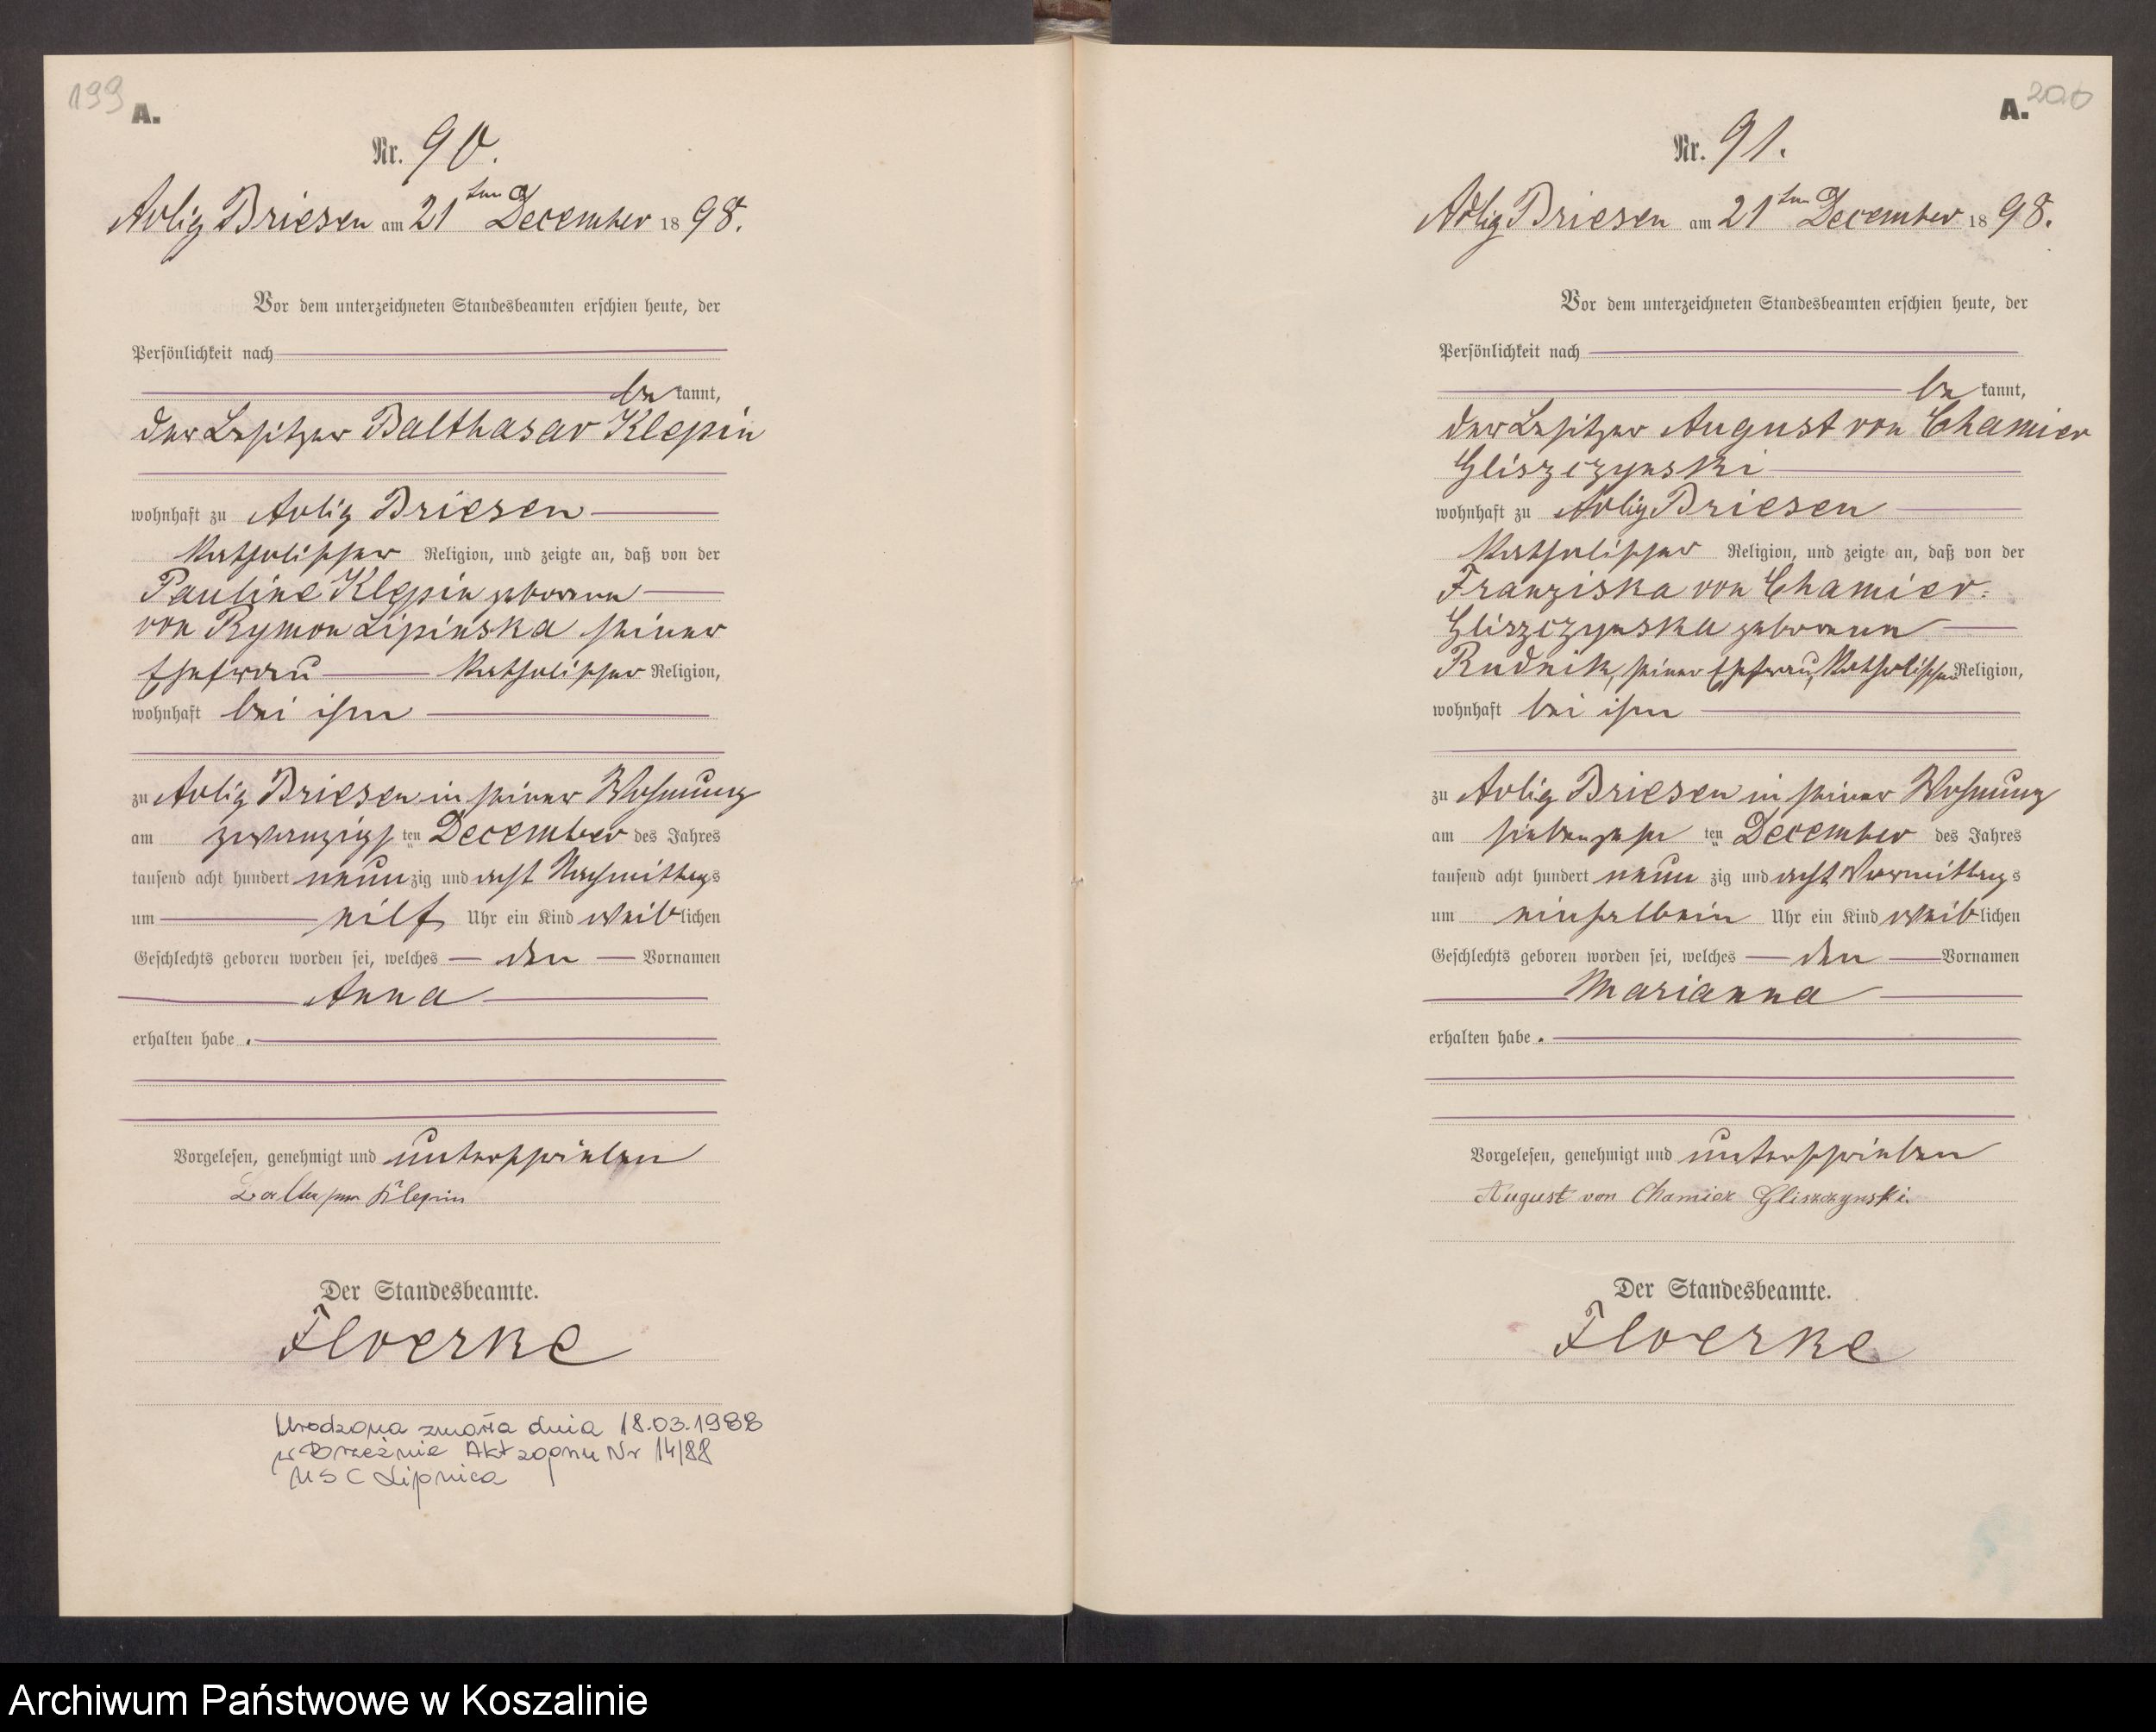 199
A.
Nr. 90.
Adlig Briesen am 21ten December 1898.
Vor dem unterzeichneten Standesbeamten erschien heute, der
Persönlichkeit nach
bekannt,
der Besitzer Balthasar Klepin
wohnhaft zu Adlig Briesen
katholischer Religion, und zeigte an, daß von der
Pauline Klepin geborenen
von Rymon Lipinska seiner
Ehefrau katholischer Religion,
wohnhaft bei ihm
zu Adlig Briesen in seiner Wohnung
am zwanzigsten December des Jahres
tausend acht hundert neunzig und acht Nachmittags
um elf Uhr ein Kind weiblichen
Geschlechts geboren worden sei, welches den Vornamen
Anna
erhalten habe.
Vorgelesen, genehmigt und unterschrieben
Balthasar Klepin
Der Standesbeamte.
Floerke
Urodzona zmarła dnia 18.03.1988
w Brzeźnie Akt zgonu Nr 14/88
USC Lipnica
200
A.
Nr. 91.
Adlig Briesen am 21ten December 1898.
Vor dem unterzeichneten Standesbeamten erschien heute, der
Persönlichkeit nach
bekannt,
der Besitzer August von Chamier
Gliszczynski
wohnhaft zu Adlig Briesen
katholischer Religion, und zeigte an, daß von der
Franziska von Chamier=
Gliszczynska geborenen
Rudnik, seiner Ehefrau, katholischer Religion,
wohnhaft bei ihm
zu Adlig Briesen in seiner Wohnung
am siebenzehnten December des Jahres
tausend acht hundert neunzig und acht Vormittags
um einhalbein Uhr ein Kind weiblichen
Geschlechts geboren worden sei, welches den Vornamen
Marianna
erhalten habe.
Vorgelesen, genehmigt und unterschrieben
August von Chamier Gliszczynski.
Der Standesbeamte.
Floerke
Archiwum Państwowe w Koszalinie